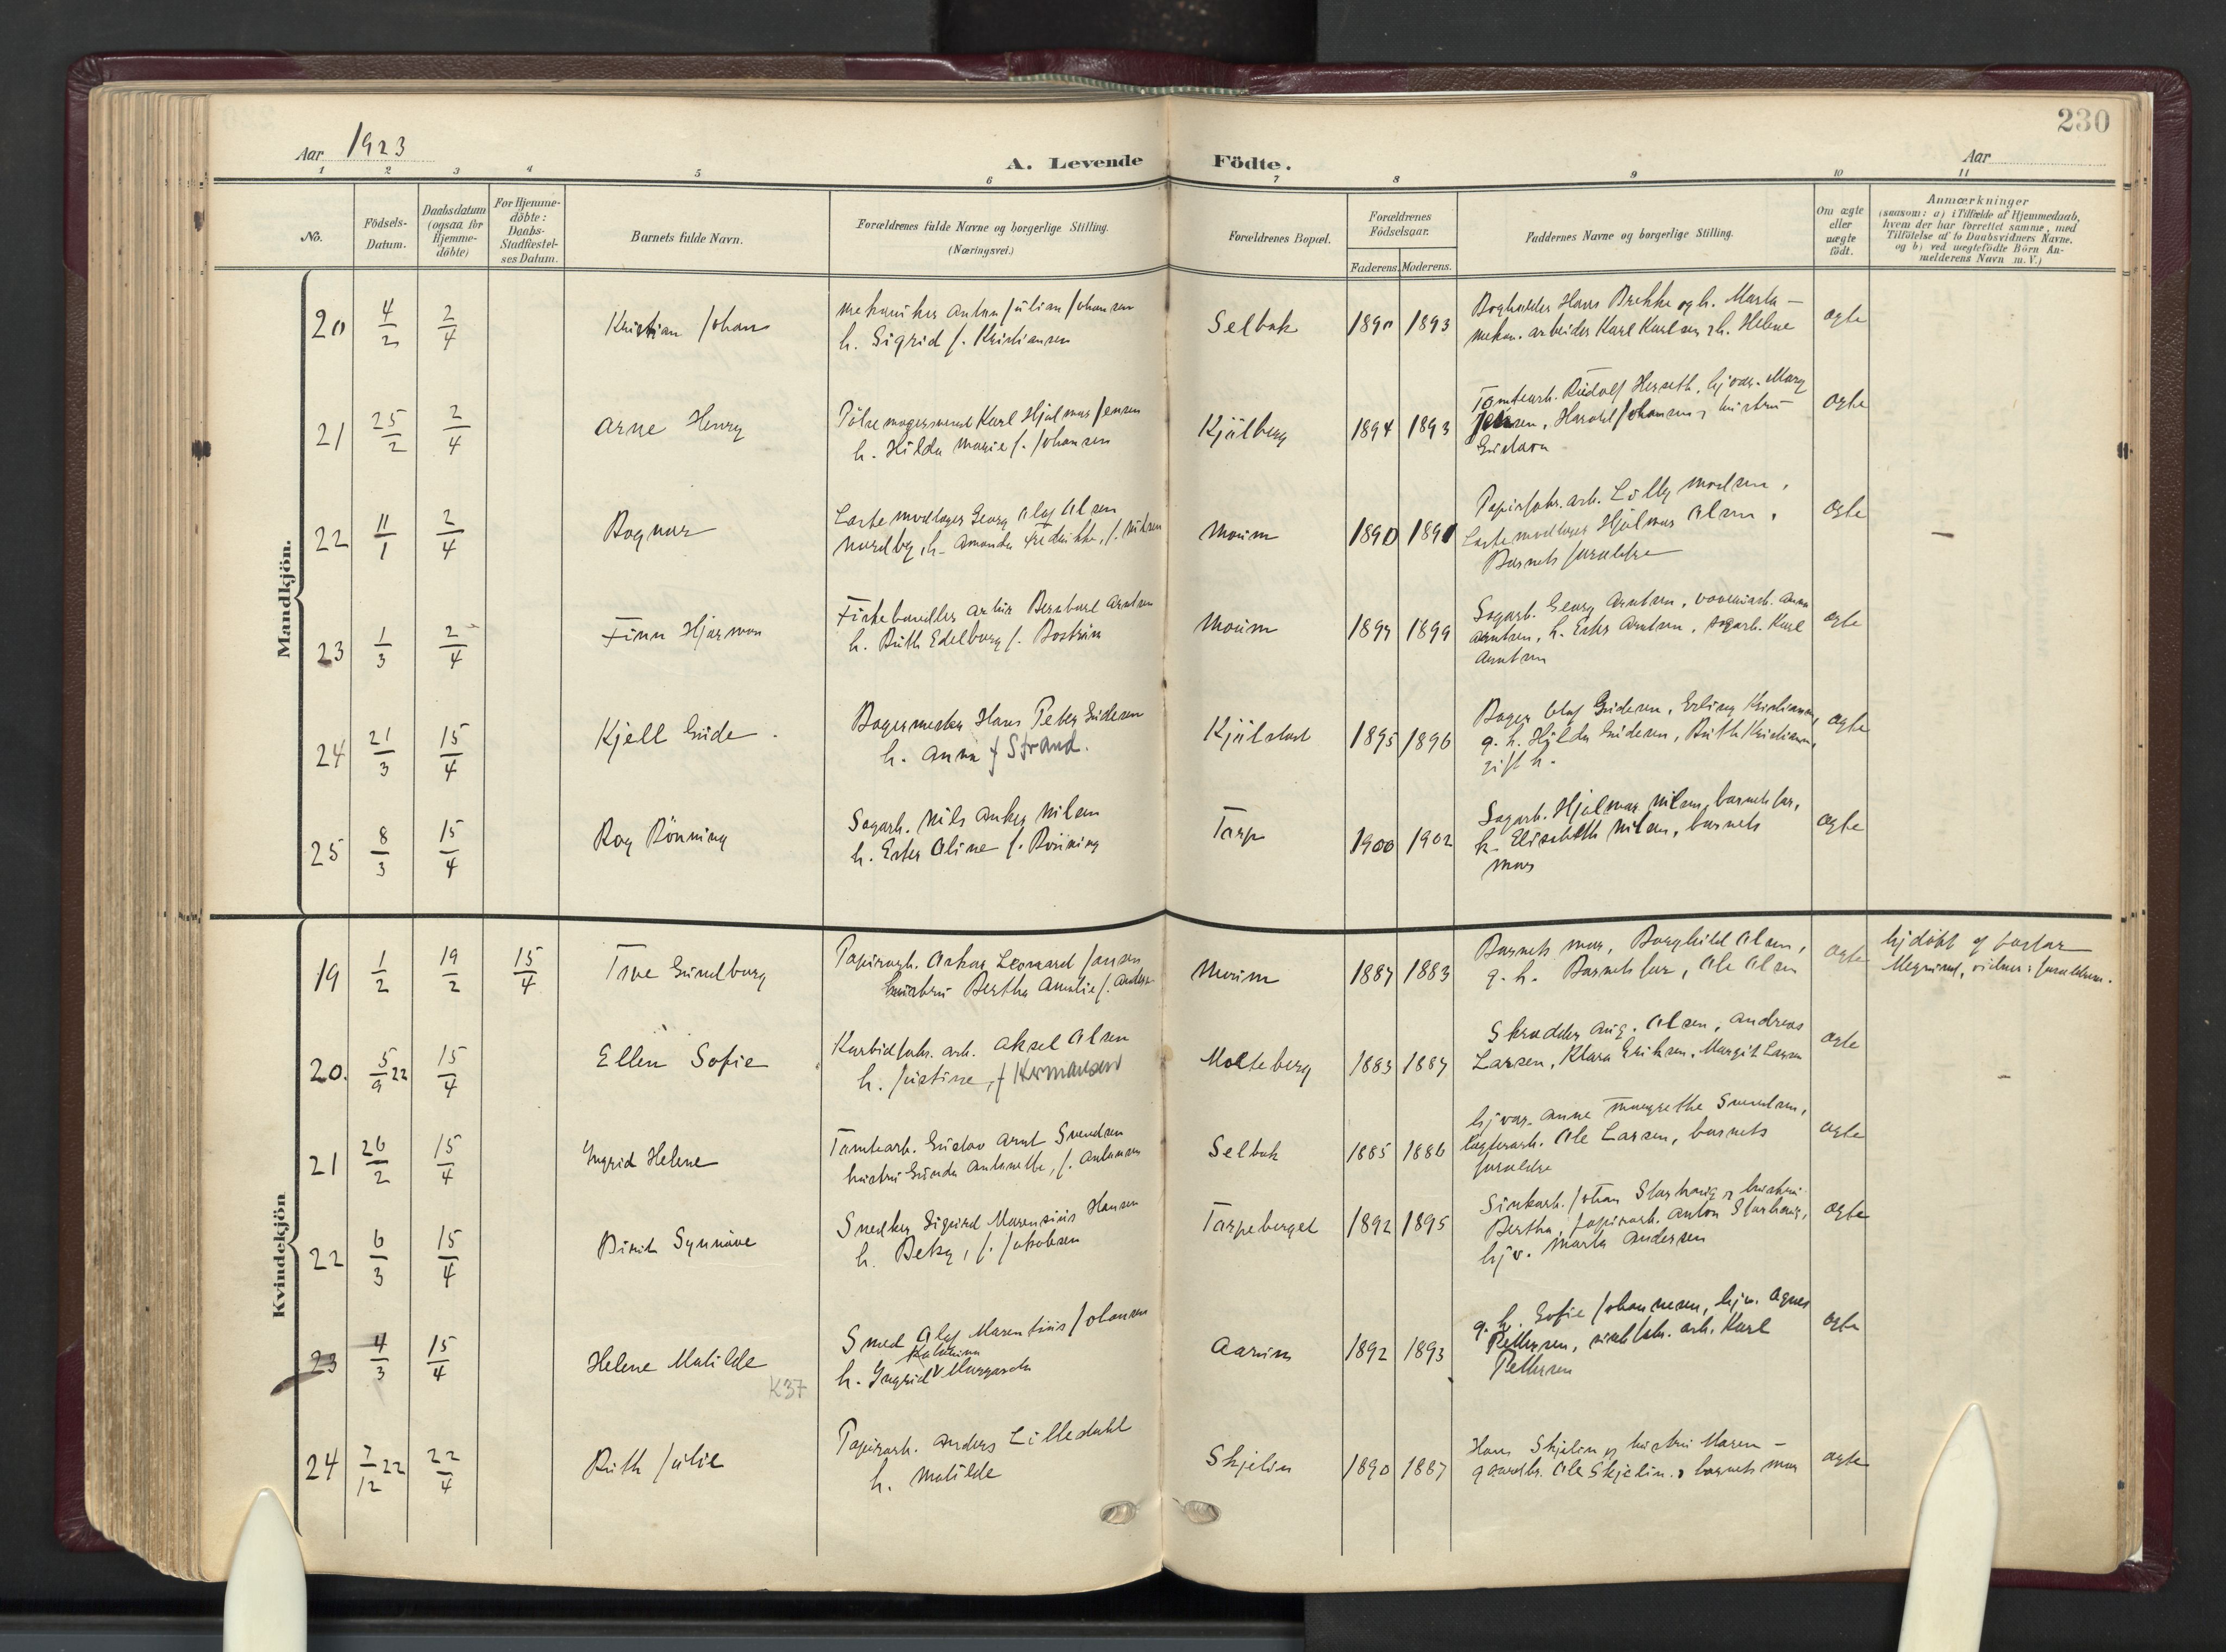 230
Aar 1923
A. Levende Födte.
Aar
1 2 3 4 5 6 7 8 9 10 11
No.
Födsels-Datum.
Daabsdatum (ogsaa for Hjemme-döbte)
For Hjemme-döbte: Daabs-Stadfæstel-ses Datum.
Barnets fulde Navn.
Forældrenes fulde Navne og borgerlige Stilling.
(Næringsvei.)
Forældrenes Bopæl.
Forældrenes Födselsaar.
Faderens. Moderens.
Faddernes Navne og borgerlige Stilling.
Om ægte eller uægte födt.
Anmærkninger
(saasom: a) i Tilfælde af Hjemmedaab,
hvem der har forrettet samme, med
Tilföielse af to Daabsvidners Navne.
og b) ved uægtefödte Börn An-
melderens Navn m. V.)
Mandkjön.
20 4/2 2/4 Kristian Johan
mekaniker Anton Julian Johansen
h. Sigrid f. Kristiansen
Selbak 1890 1893
Bogholder Hans Brekke og h. Marta –
mekan. arbeider Karl Karlsen & h. Helene
ægte
21 25/2 2/4 Arne Henry
Pölsemagersvend Karl Hjalmar Jensen
h. Hilda Marie f. Johansen
Kjølberg 1894 1893
Tomtearb. Rudolf Herseth, hjvær. Mary
Jensen, Harald Johansen & hustru
Gustava
ægte
22 11/1 2/4 Ragnar
Lastemodtager Georg Olaf Olsen
Nordby, h. Amanda Fredrikke, f. Nilsen
Moum 1890 1891
Papirfabr. arb. Lilly Madsen,
Lastemodtager Hjalmar Olsen,
Barnets forældre
ægte –
23 1/3 2/4 Finn Hjarman
Fiskehandler Artur Bernhard Arntsen
h. Ruth Edelborg f. Boström
Moum 1899
Sagarb. Georg Arntsen, Anna
Arntsen, h. Ester Arntsen, sagarb. Karl
Arntsen
ægte
24 21/3 15/4 Kjell Gude
Bagermester Hans Peter Gudesen
h. Anna f Strand.
Kjølstad 1895 1896
Bager Olaf Gudesen, Erling Kristiansen,
g. h. Hilda Gudesen, Ruth Kristiansen,
gift h.
ægte
25 8/3 15/4 Roy Rönning
Sagarb. Nils Anker Nilsen
h. Ester Oline f. Rönning
Torp 1900 1902
Sagarb. Hjalmar Nilsen, barnets far,
h. Elisabeth Nilsen, barnets
mor
ægte
Kvindekjön
19 1/2 19/2 15/4 Tove Gundborg
Papirarb. Oskar Leonard Jansen
hustru Bertha Amalie f. Anders.
Moum 1887 1883
Barnets mor, Borghild Olsen,
g. h. Barnets far, Ole Olsen
ægte
hjdöbt af pastor
, vidner: forældrene.
20. 5/9 22 15/4 Ellen Sofie
Karbidfabr. arb. Aksel Olsen
h. Justine, f Hermansen
Molteberg 1883 1887
Skrædder Aug. Olsen, Andreas
Larsen, Klara Eriksen, Margit Larsen
ægte –
21 26/2 15/4 Ingrid Helene
Tomtearb. Gustav Arnt Svendsen
hustru Gunda Antonette, f. Antonsen
Selbak 1885 1886
hjvær. Anne Margrethe Svendsen,
Ole Larsen, barnets
forældre
ægte
22 6/3 15/4 Birit Synnöve
Snedker Sigurd Marensius Hansen
h. Betsy, f. Jakobsen
Torpeberget 1892 1895
Sinkarb. Johan Starhaug & hustru
Bertha, papirarb. Anton Starhaug,
hjv. Marta Andersen
ægte
23 4/3 15/4 Helene Matilde
K37
Smed Olaf Marentius Johansen
Katarina
h. Ingrid v Margareta
Aarum 1892 1893
g. h. Sofie Johannesen, hjv. Agnes
Pettersen, sinkfabr. arb. Karl
Pettersen
ægte
24 7/12 22 22/4 Ruth Julie
Papirarb. Anders Lilledahl
h. Matilde
Skjelin 1890 1887
Hans Skjelin og hustru Maren –
gaardbr. Ole Skjelin & barnets mor
ægte